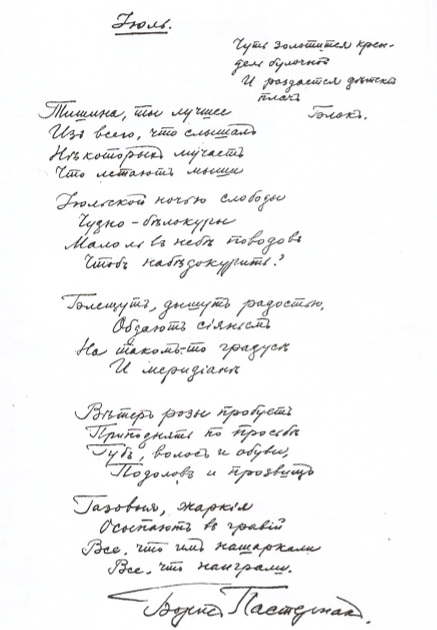 Июль.
Чуть золотится крен-
дель булочной
И раздается дѣтскій
плачъ
Блокъ.
Тишина, ты лучшее
Изъ всего, что слышалъ
Нѣкоторыхъ мучаетъ
Что летаютъ мыши
Іюльской ночью слободы
Чудно-бѣлокуры
Мало ли въ небѣ поводовъ
Чтобъ набѣдокурить?
Блещутъ, дышутъ радостью,
Обдаютъ сіяніемъ
На такомъ-то градусѣ
И меридіанѣ
Вѣтеръ розы пробуетъ
Приподнять по просьбѣ
Губъ, волосъ и обуви,
Подоловъ и прозвищъ
Газовыя, жаркія
Осыпаютъ въ гравій
Все, что имъ нашаркали
Все, что наиграли.
Борисъ Пастернак.